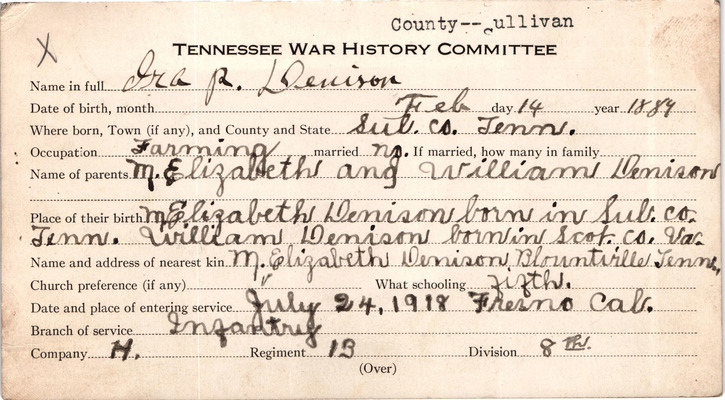 County--Sullivan
X
TENNESSEE WAR HISTORY COMMITTEE
Name in full Ira P. Denison
Date of birth, month Feb day 14 year 1889
Where born, Town (if any), and County and State Sul. Co. Tenn.
Occupation Farming married no. If married, how many in family
Name of parents M. Elizabeth and William Denison
Place of their birth M Elizabeth Denison born in Sul. co.
Tenn. William Denison born in Scot. Co. Va.
Name and address of nearest kin M. Elizabeth Denison Blountville Tenn,
Church preference (if any) What schooling fifth.
Date and place of entering service July 24, 1918 Fresno Cal.
Branch of service Infantry
Company H. Regiment 13 Division 8 th.
(Over)